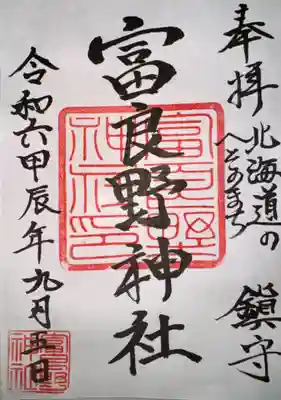 奉拝
北海道の
へそのまち
鎮守
富良野神社
富良野
神社印
令和六甲辰年九月五日
富良野
神社